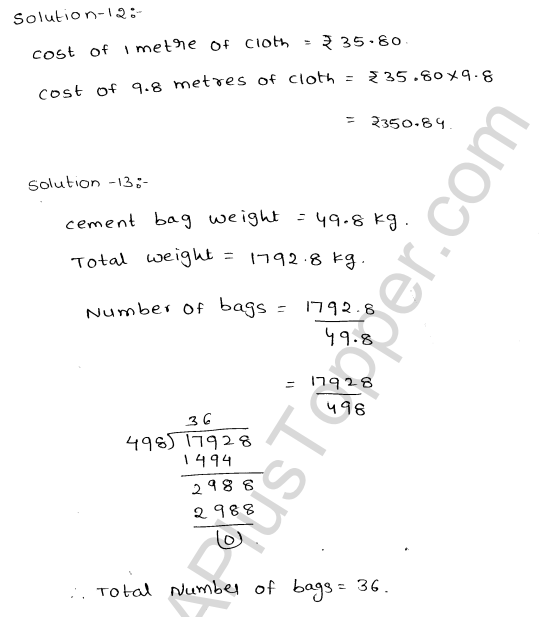 Solution-12:-
cost of 1 metre of cloth = ₹ 35.80.
cost of 9.8 metres of cloth = ₹35.80×9.8
= ₹350.84.
Solution -13:-
cement bag weight = 49.8 kg.
Total weight = 1792.8 kg.
Number of bags = 1792.8
49.8
= 17928
498
36
498) 17928
1494
2988
2988
0
∴ Total Number of bags = 36.
APlusTopper.com